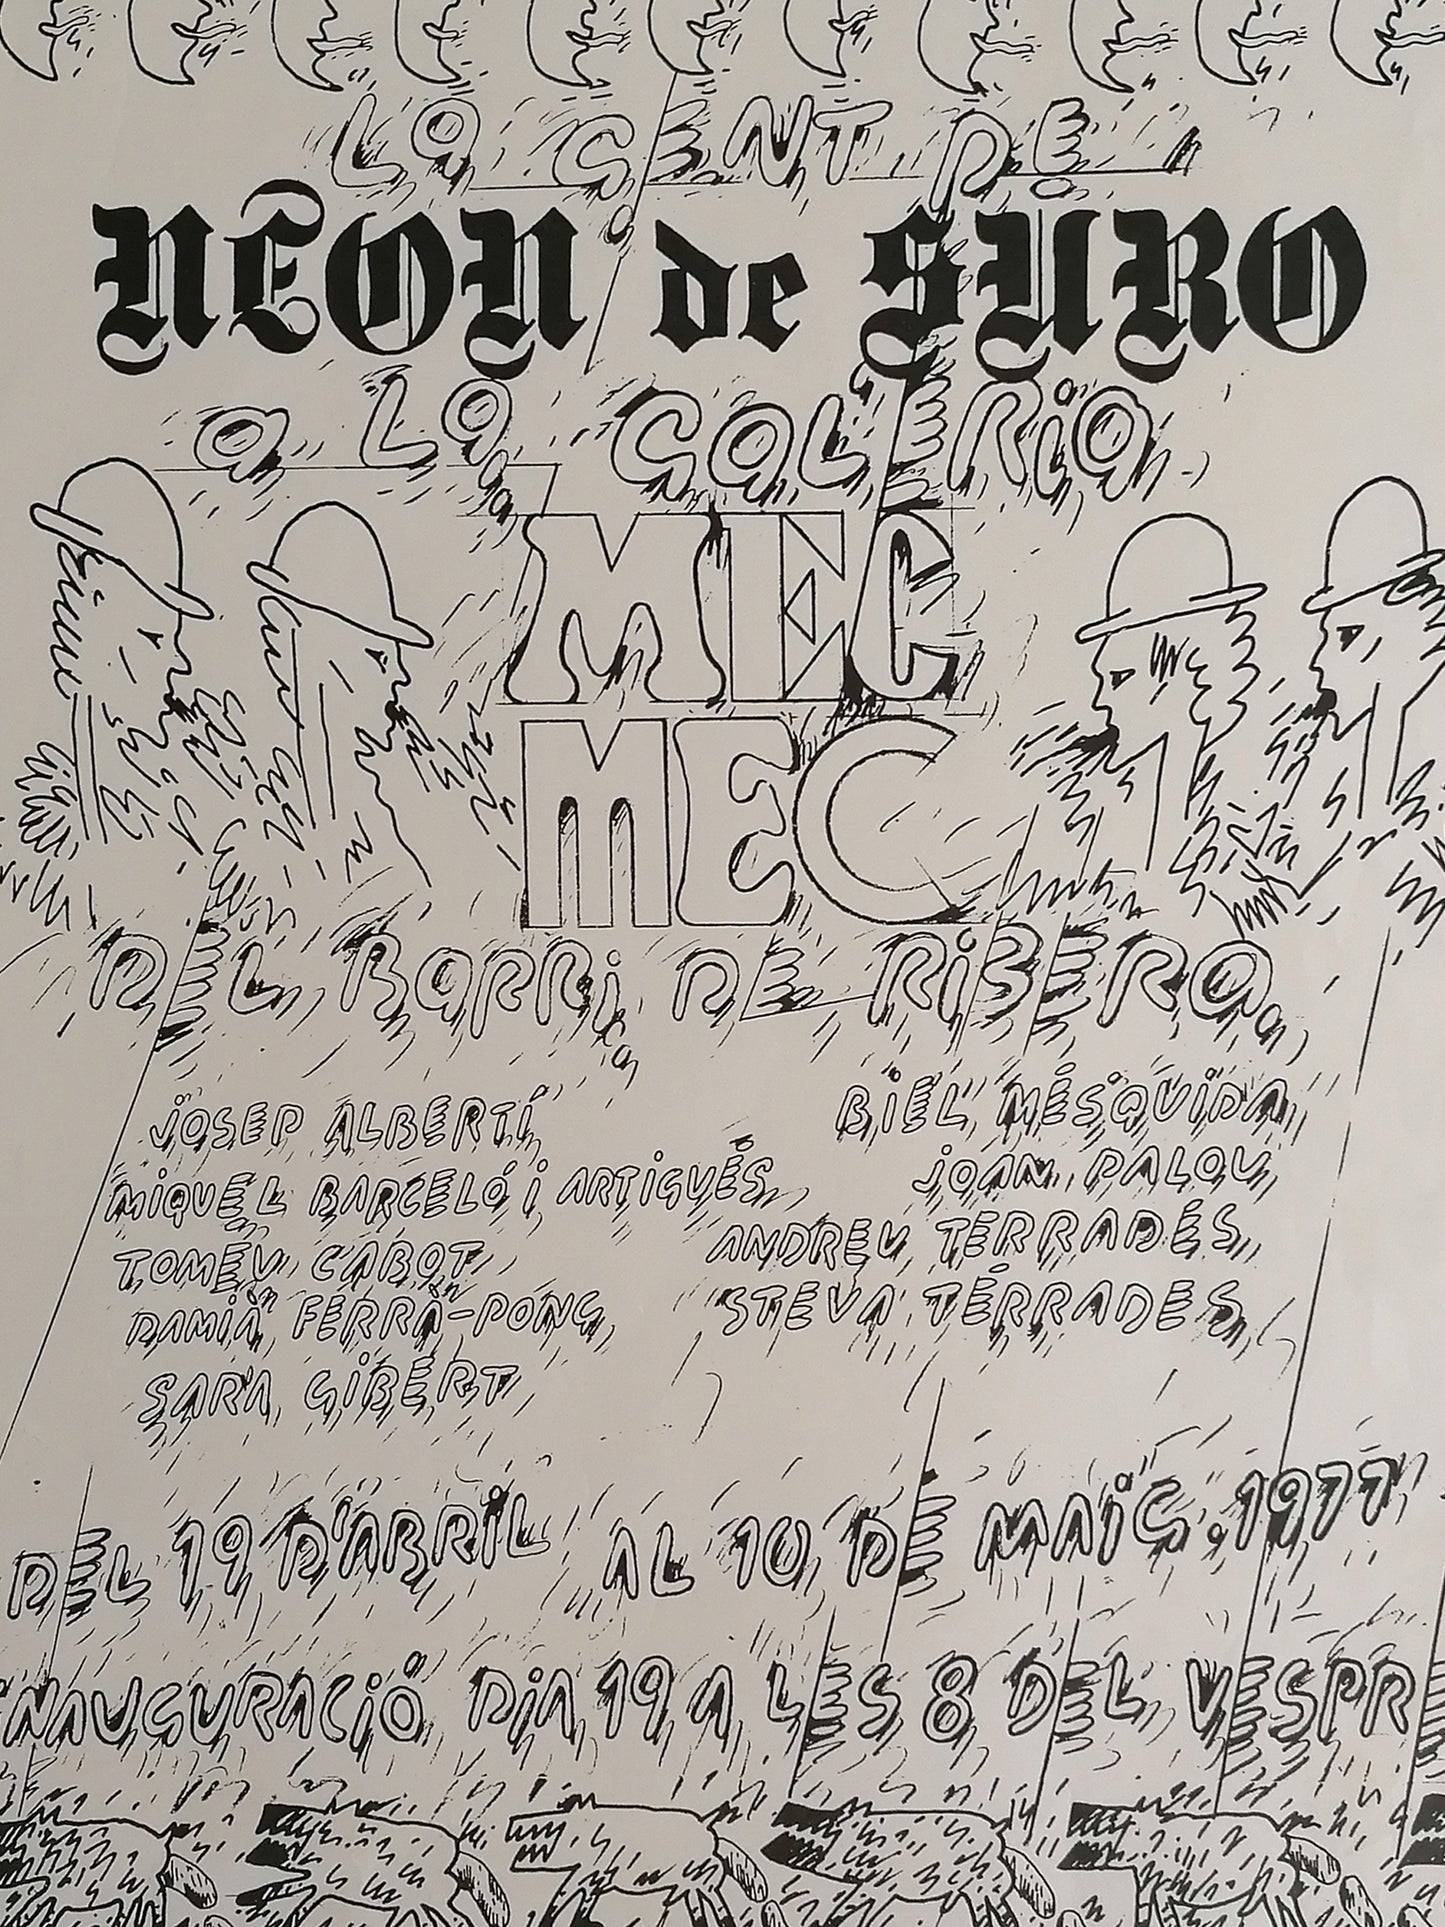 La GENT DE
NEON de SURO
a La GaLERia
MEC
MEC
DEL BaRRi DE RiBERa
JOSEP ALBERTÍ
MIQUEL BARCELÓ i ARTIGUES
TOMEU CABOT
DAMIÀ FERRÀ-PONÇ
SARA GIBERT
BIEL MESQUIDA
JOAN PALOU
ANDREU TERRADES
STEVA TERRADES
DEL 19 D'ABRIL AL 10 DE MAIG, 1977
INAUGURACIÓ DIA 19 A LES 8 DEL VESPRE